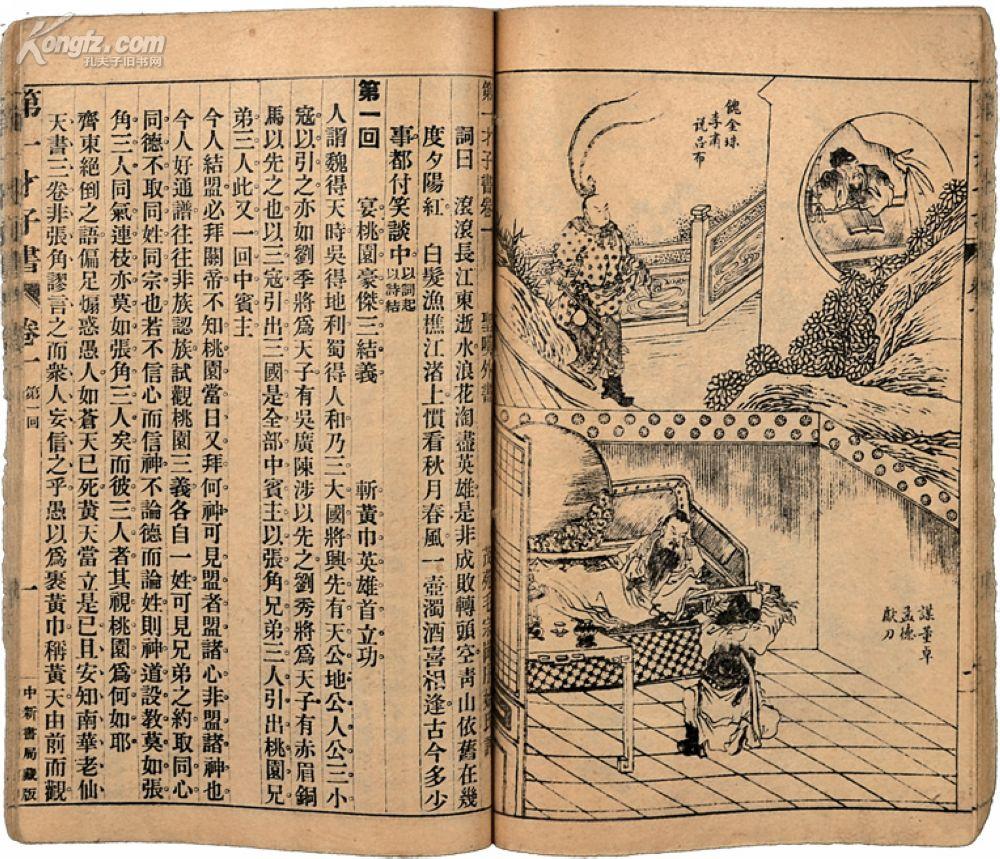 Kongfz.com
孔夫子旧书网
餽金珠
李肅
說呂布
謀董卓
孟德
獻刀
第一才子書卷一
聖嘆外書
詞曰　滾滾長江東逝水浪花淘盡英雄是非成敗轉頭空靑山依舊在幾
度夕陽紅　白髮漁樵江渚上慣看秋月春風一壺濁酒喜相逢古今多少
事都付笑談中以詞起以詩結
第一回　宴桃園豪傑三結義　斬黃巾英雄首立功
人謂魏得天時吳得地利蜀得人和乃三大國將興先有天公地公人公三小
寇以引之亦如劉季將爲天子有吳廣陳涉以先之劉秀將爲天子有赤眉銅
馬以先之也以三寇引出三國是全部中賓主以張角兄弟三人引出桃園兄
弟三人此又一回中賓主
今人結盟必拜關帝不知桃園當日又拜何神可見盟者盟諸心非盟諸神也
今人好通譜往往非族認族試觀桃園三義各自一姓可見兄弟之約取同心
同德不取同姓同宗也若不信心而信神不論德而論姓則神道設敎莫如張
角三人同氣連枝亦莫如張角三人矣而彼三人者其視桃園爲何如耶
齊東絕倒之語偏足煽惑愚人如蒼天已死黃天當立是已且安知南華老仙
天書三卷非張角謬言之而衆人妄信之乎愚以爲裹黃巾稱黃天由前而觀
第一才子書　卷一　第一回　一　中新書局藏版